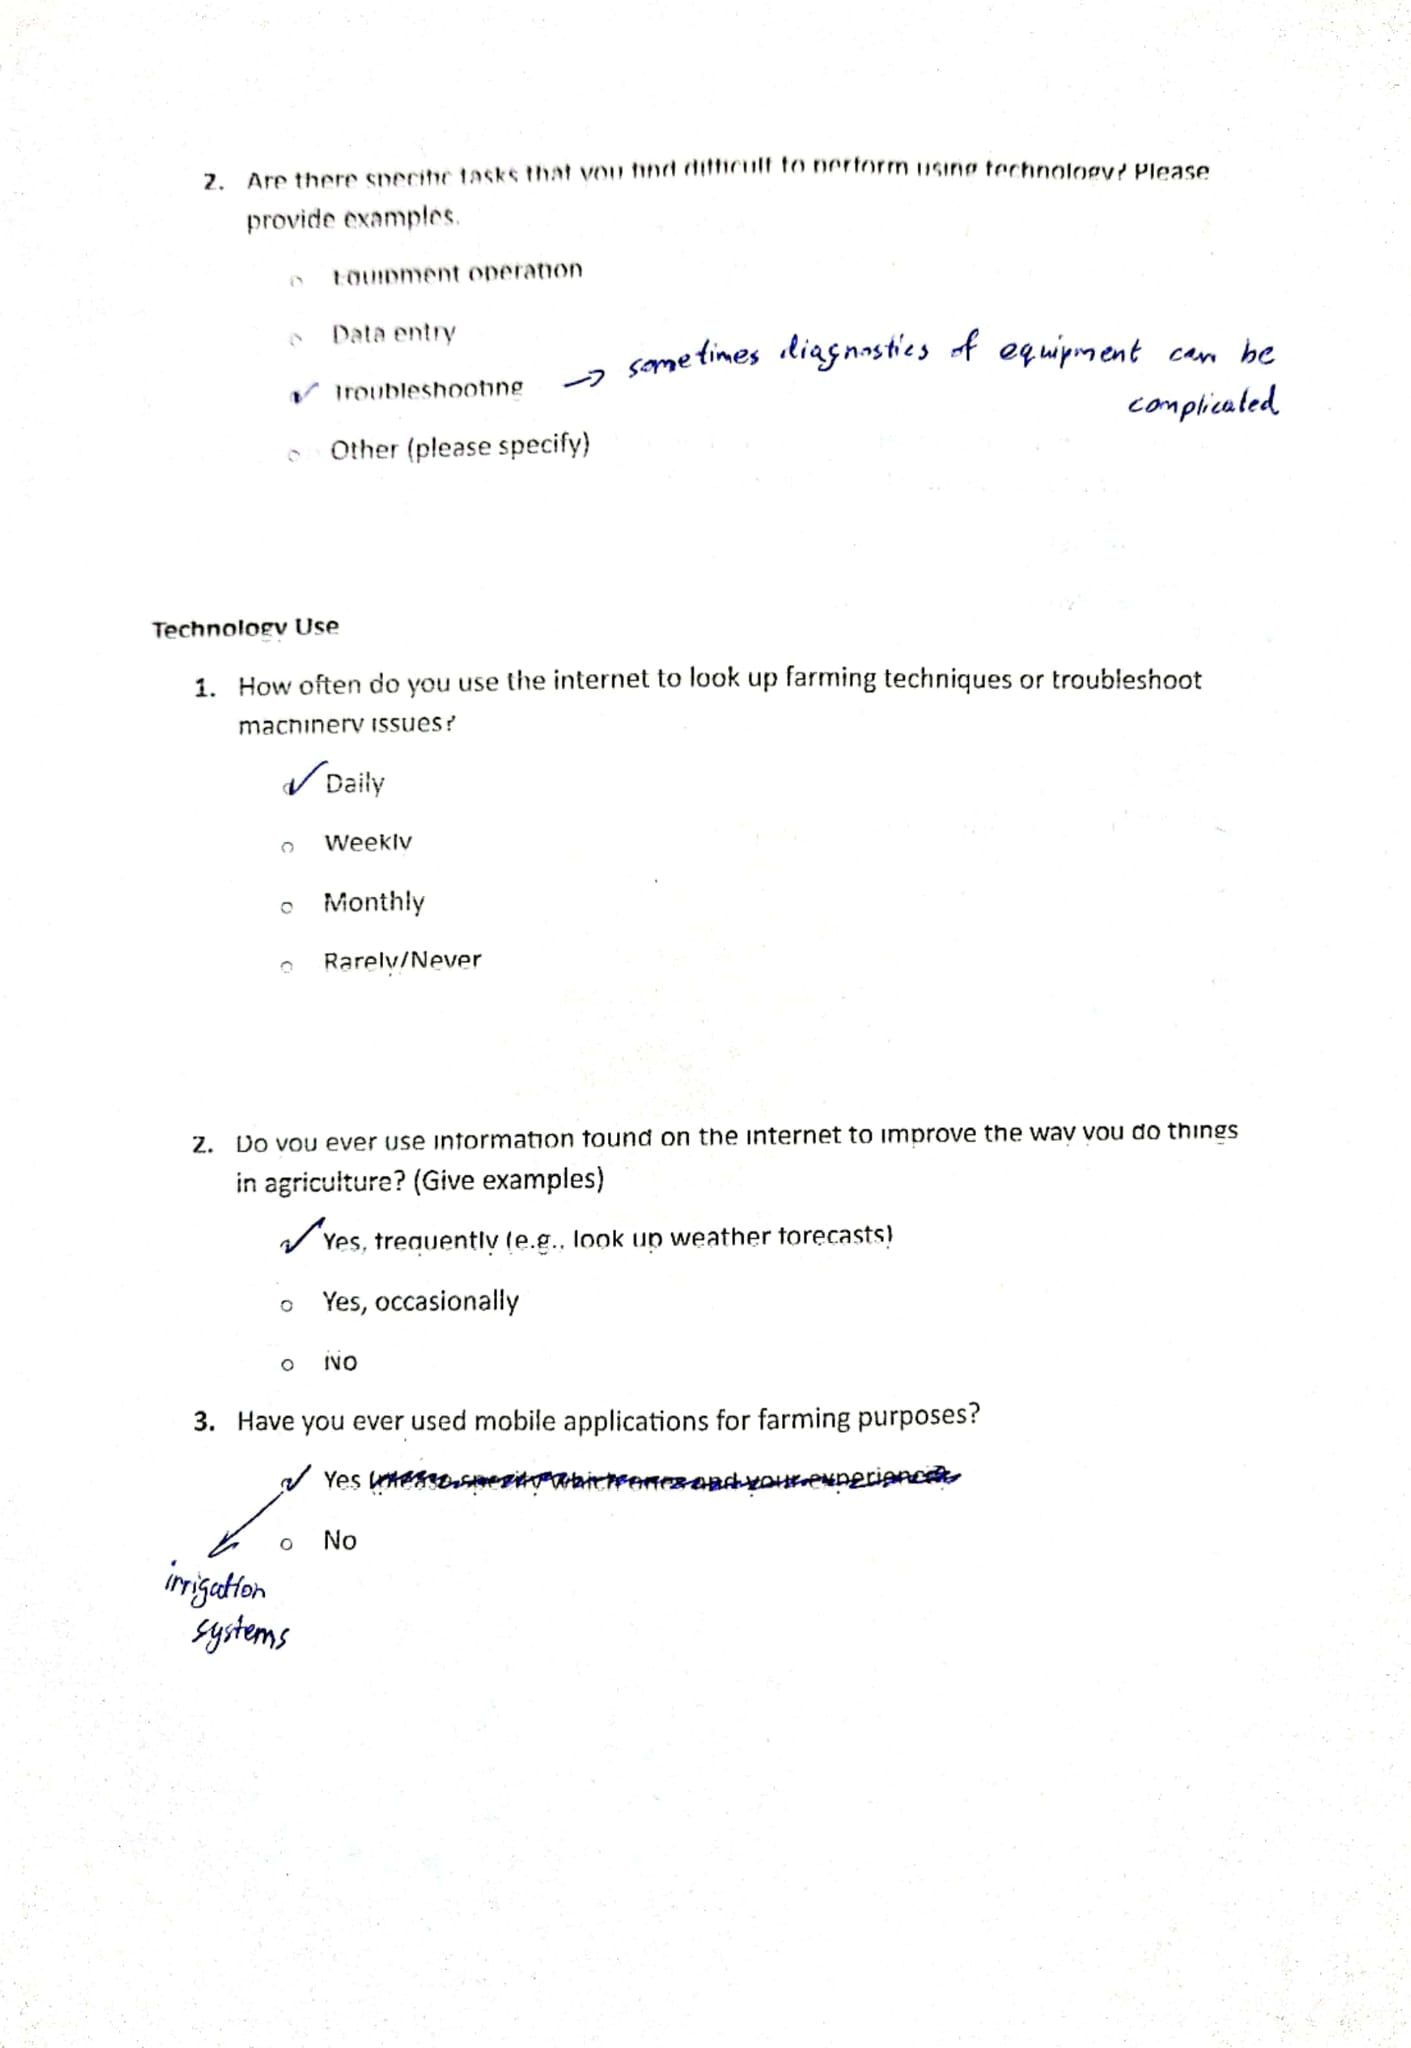 2. Are there specific tasks that you find difficult to perform using technology? Please
provide examples.
Equipment operation
Data entry
✓ Troubleshooting → sometimes diagnostics of equipment can be
complicated
Other (please specify)
Technology Use
1. How often do you use the internet to look up farming techniques or troubleshoot
machinery issues?
✓ Daily
Weekly
Monthly
Rarely/Never
2. Do you ever use information found on the internet to improve the way you do things
in agriculture? (Give examples)
✓ Yes, frequently (e.g., look up weather forecasts)
Yes, occasionally
No
3. Have you ever used mobile applications for farming purposes?
✓ Yes (please specify which ones and your experience)
No
irrigation
systems